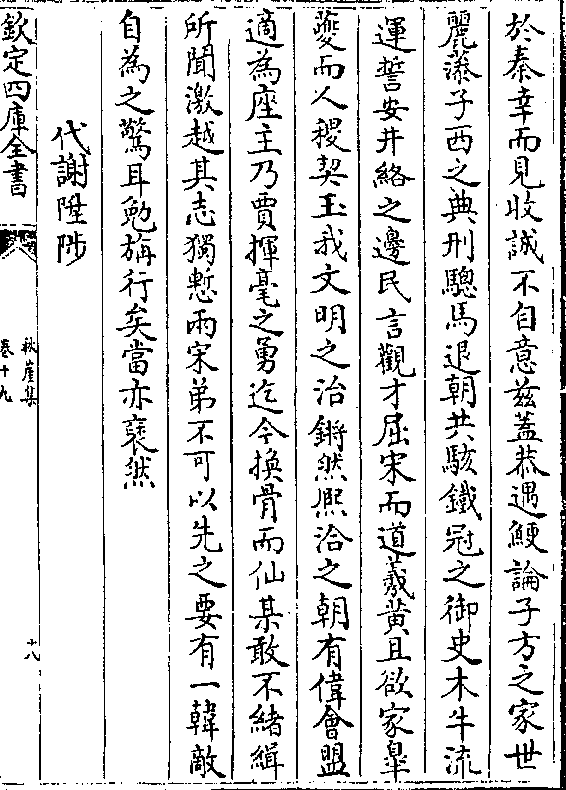 於秦幸而見收誠不自意兹蓋恭遇鯁論子方之家世
麗藻子西之典刑驄馬退朝共駭鐵冠之御史木牛流
運誓安井絡之邊民言觀才屈宋而道羲黄且欲家臯
夔而人稷契玉我文明之治鏘然熈洽之朝有偉會盟
適為座主乃賈揮毫之勇迄今換骨而仙某敢不緒緝
所聞激越其志獨慙兩宋弟不可以先之要有一韓敵
自為之驚耳勉旃行矣當亦褎然
代謝陞陟
欽定四庫全書
秋崖集
卷十九
十八